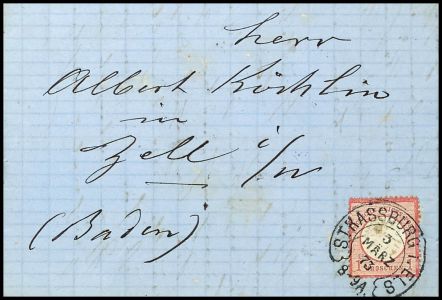 Herr
Albert Köchlin
in
Zell i/W
(Baden)
STRASSBURG I. ELS
5
MÄRZ
73
8-9A.